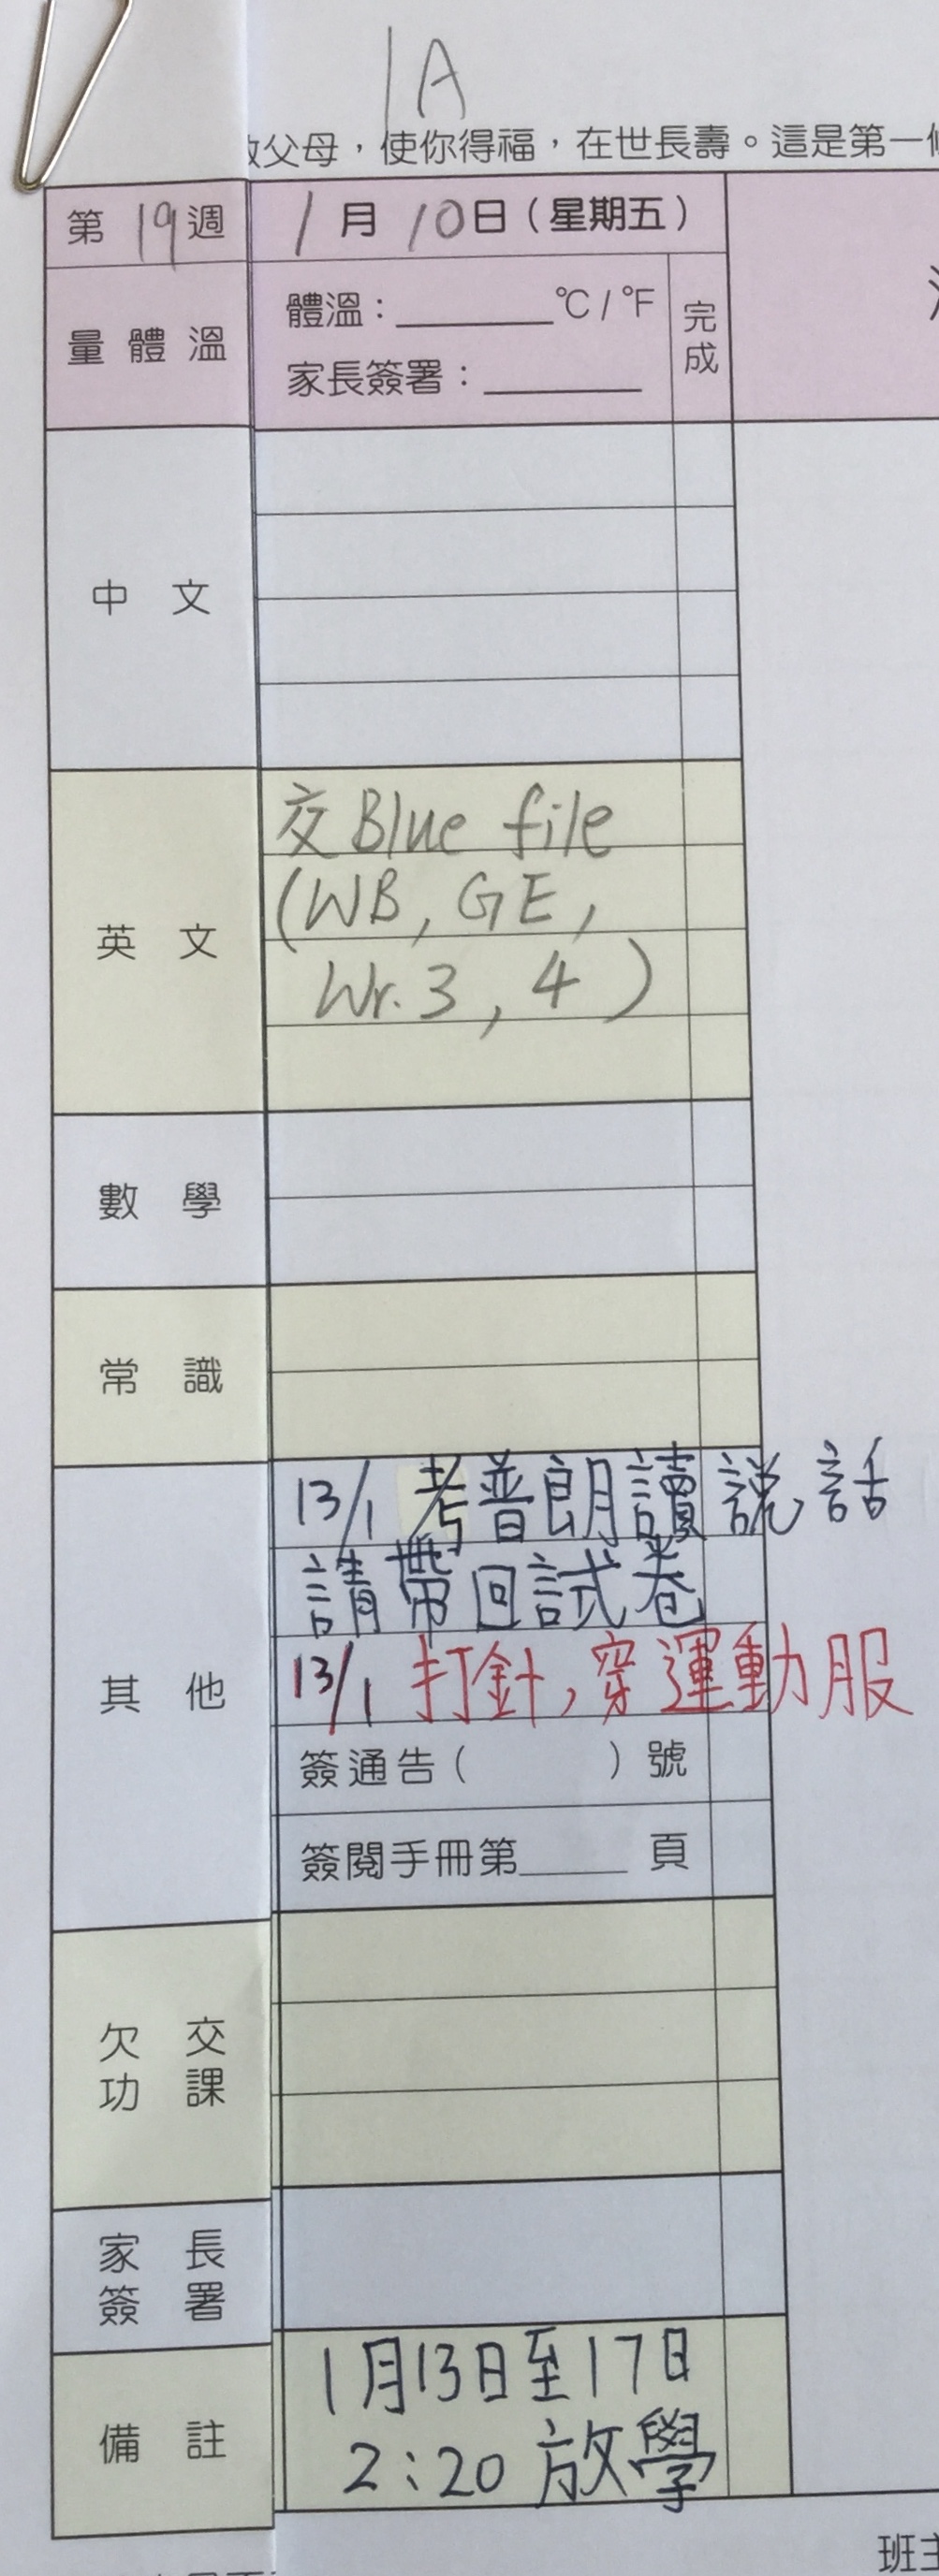 1A
父母，使你得福，在世長壽。這是第一
第19週 1月10日（星期五）
量體溫 體溫：______°C/°F 完成
家長簽署：______
中文
英文
交Blue file
(WB, GE,
Wr. 3, 4)
數學
常識
其他
13/1 考普朗讀説話
請帶回試卷
13/1 打針，穿運動服
簽通告（ ）號
簽閱手冊第____頁
欠交
功課
家長
簽署
備註
1月13日至17日
2:20 放學
班主